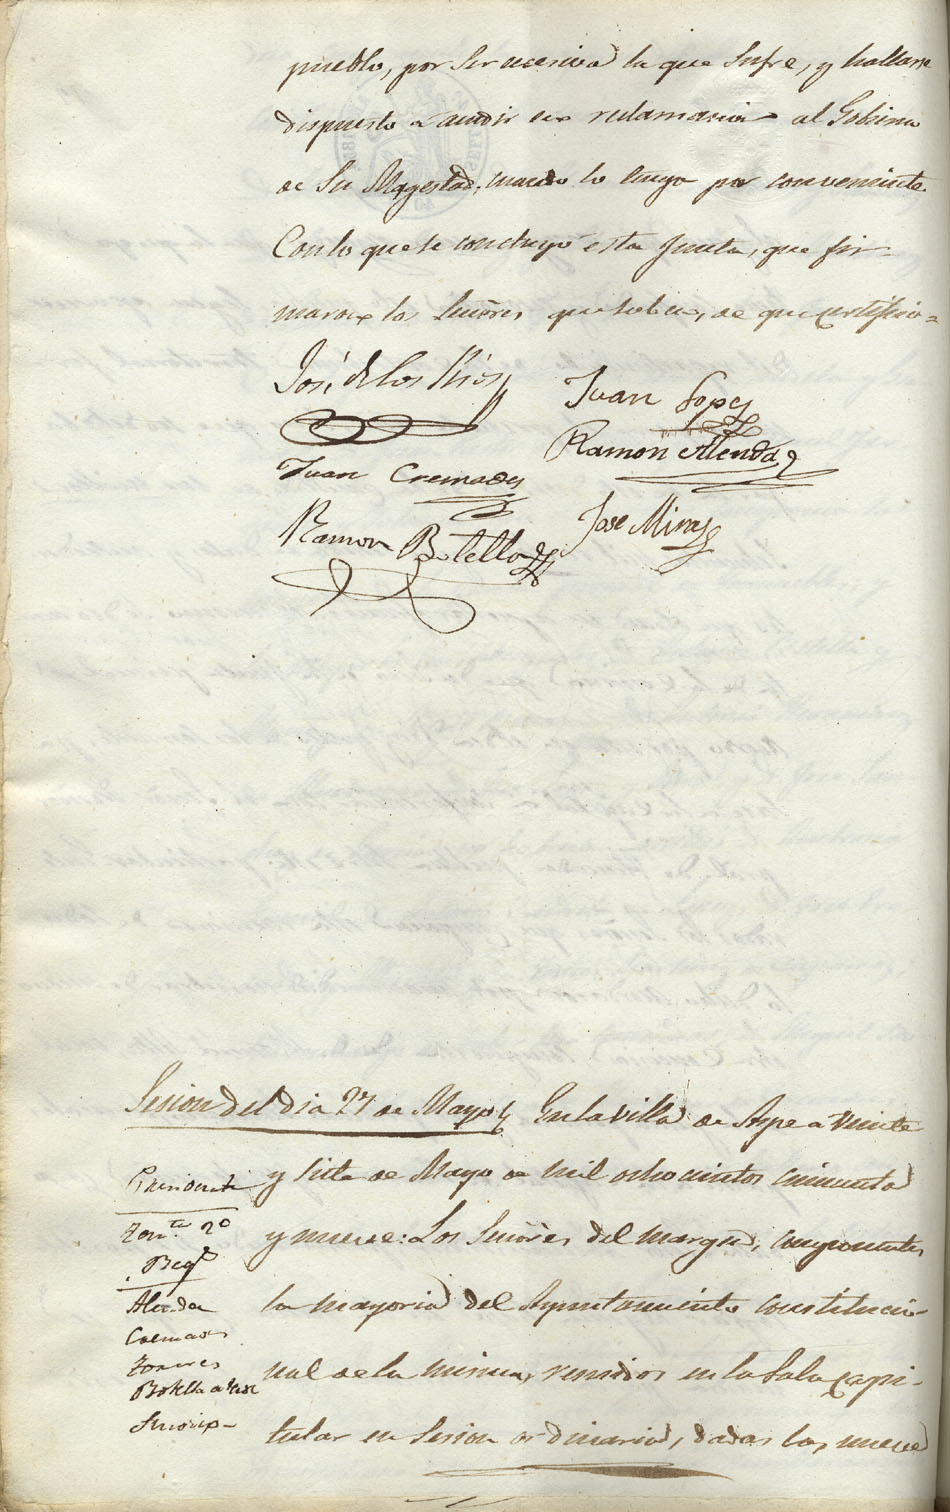 pueblo, por ser ecsesiva la que sufre, y hallarse
dispuesto a acudir en reclamacion al Gobierno
de Su Magestad, cuando lo tenga por conveniente.
Con lo que se concluyó esta Junta, que fir-
maron los Señores que saben, de que certifico=
José de los Rios
Juan Lopez
Juan Cremades
Ramon Alenda
Ramon Botella
Jose Miras
Sesion del dia 27 de Mayo
En la villa de Aspe a veinte
y siete de Mayo de mil ochocientos cincuenta
y nueve: Los Señores del margen, componentes
la mayoria del Ayuntamiento constitucio-
nal de la misma, reunidos en la Sala capi-
tular en sesion ordinaria, dadas las nueve
Presidente
Ten.te 2º
Alenda
Cremades
Botella